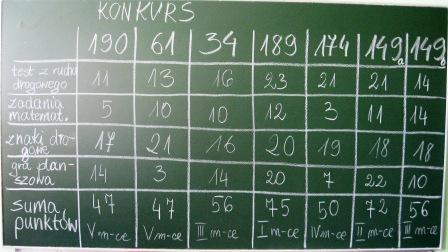 KONKURS
190 61 34 189 174 149a 149b
test z ruchu drogowego 11 13 16 23 21 21 14
zadania matemat. 5 10 10 12 3 11 14
znaki drogowe 17 21 16 20 19 18 18
gra planszowa 14 3 14 20 7 22 10
suma punktów 47 47 56 75 50 72 56
V m-ce V m-ce III m-ce I m-ce IV m-ce II m-ce III m-ce